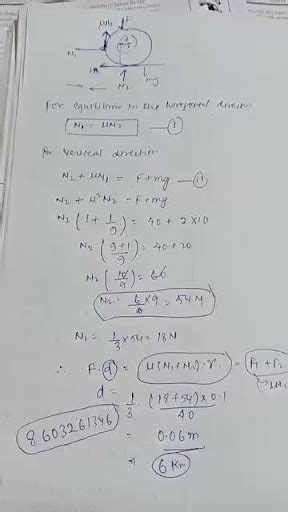 μN₁ F
N₁
mg
N₂
For equilibrium in the horizontal direction
N₁ = μN₂ — (I)
for vertical direction
N₂ + μN₁ = F + mg — (II)
N₂ + μ²N₂ = F + mg
N₂ (1 + 1/9) = 40 + 2×10
N₂ (9+1/9) = 40 + 20
N₂ (10/9) = 60
N₂ = 6/ ×9 = 54 N
N₁ = 1/3 × 54 = 18N
∴ F.d = μ(N₁+N₂).r = f₁ + f₂
μN₁
d = 1/3 . (18+54)×0.1/40
= 0.06m
8603261346
⇒ 6